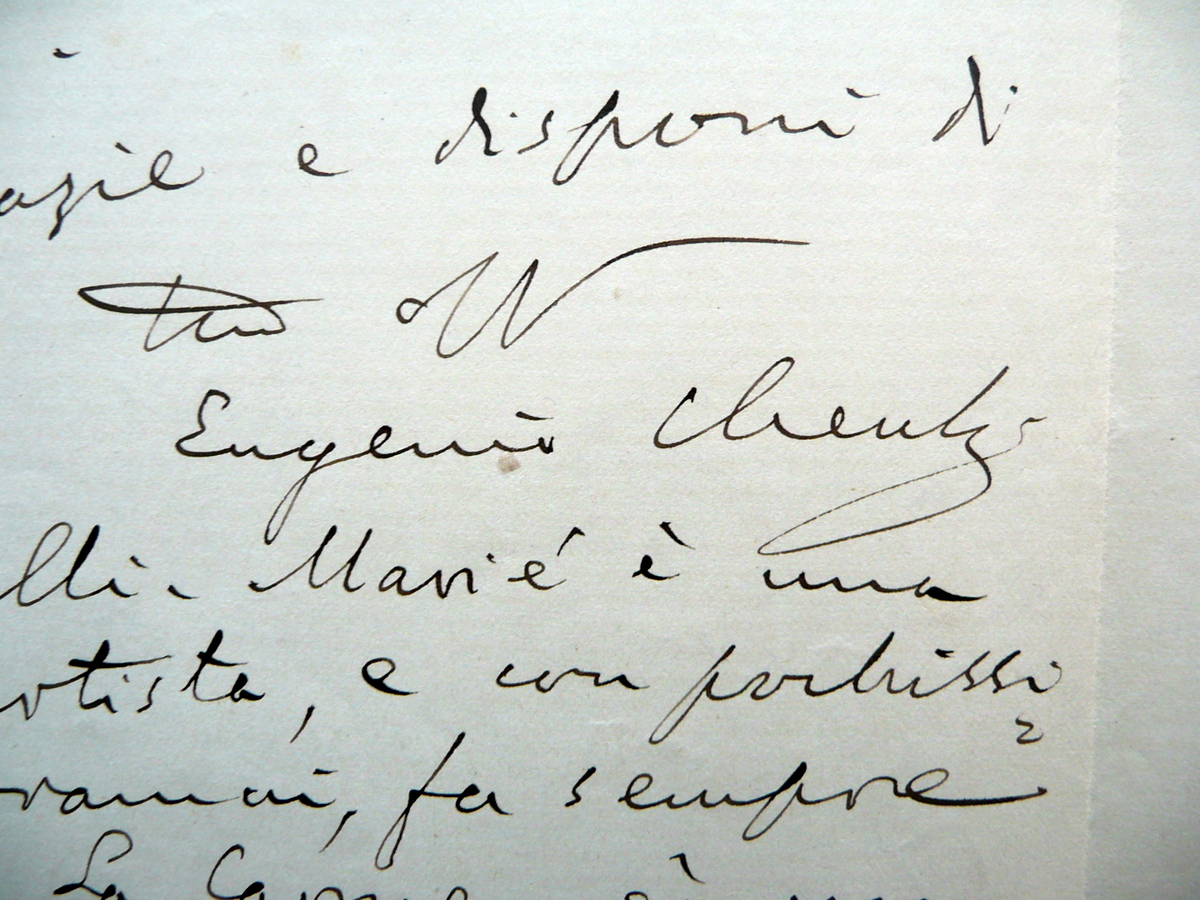 azie e disponi di
tuo
Eugenio Checchi
lli. Marié è una
otista, e con pochissi
ramai, fa sempre
La è una